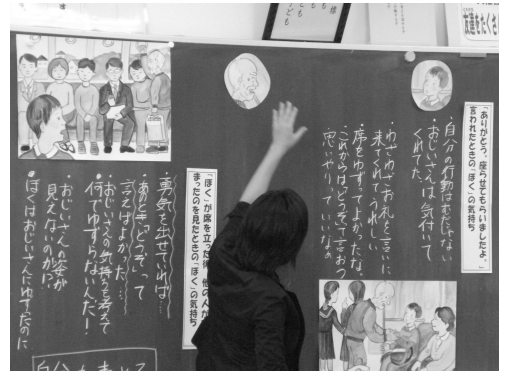 様
とも
ども
友達をたくさ
「ありがとう。座らせてもらいましたよ。」
言われたときの「ぼく」の気持ち
・自分の行動はむだじゃない
・おじいさんは気付いて
くれてた。
・わざわざお礼を言いに
来てくれてうれしい
・席をゆずってよかったな。
・これからはどうぞって言おう
・思いやりっていいなぁ
「ぼく」が席を立った後、他の人が
まったのを見たときの「ぼく」の気持ち
・勇気を出せていれば…
・あの時「どうぞ」って
言えばよかった…
・おじいさんの気持ちを考えて
何でゆずらないんだ!
・おじいさんの姿が
見えないのか!?
・ぼくはおじいさんにゆずったのに